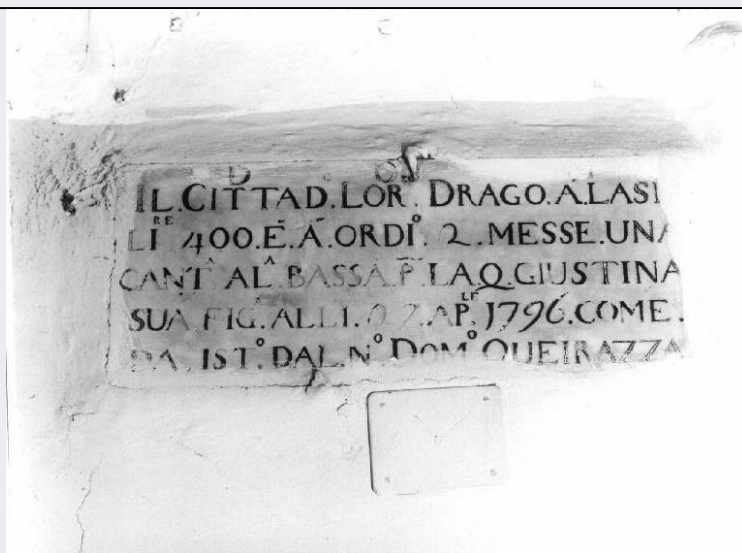 IL.CITTAD.LOR.º DRAGO.À.LASI
LIᴿᴱ 400.E.À.ORDIº.2.MESSE.UNA
CANTᴬ ALᴬ BASSA P LA Q.GIUSTINA
SUA FIGᴬ.ALLI.27.APᴸᴱ.1796.COME.
DA ISTº.DAL.Nº DOMº QUEIRAZZA